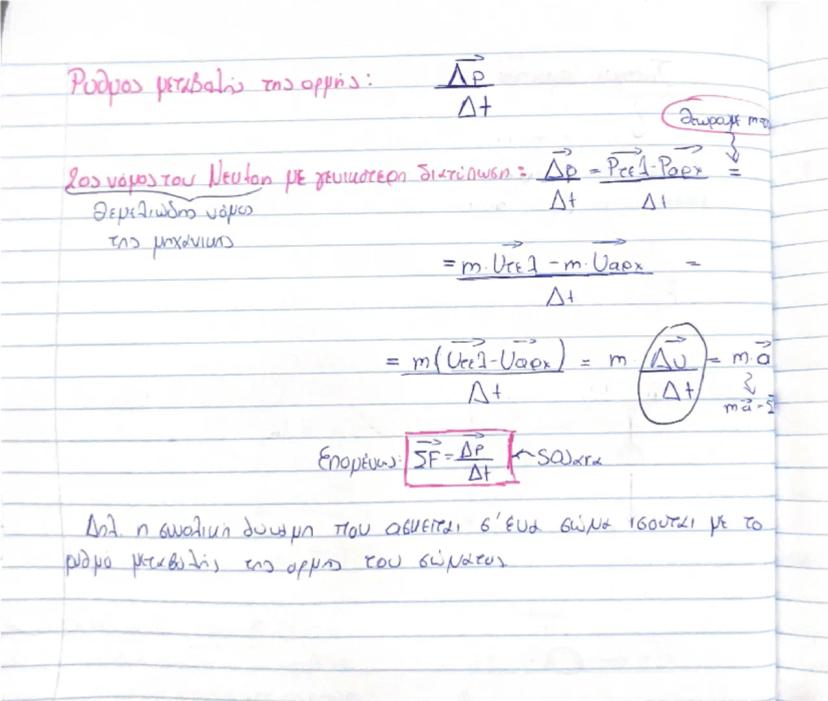 Ρυθμός μεταβολής της ορμής: Δp/Δt
θεωρούμε m
2ος νόμος του Νευτων με γενικότερη διατύπωση = Δp/Δt = Pτελ-Pαρχ/Δt =
θεμελιώδης νόμος
της μηχανικής
= m·Uτελ - m·Uαρχ/Δt =
= m(Uτελ-Uαρχ)/Δt = m·Δυ/Δt = m·a
ma =
Επομένως: ΣF = Δp/Δt
Δηλ. η συνολική δύναμη που ασκείται σ' ένα σώμα ισούται με το
ρυθμό μεταβολής της ορμής του σώματος